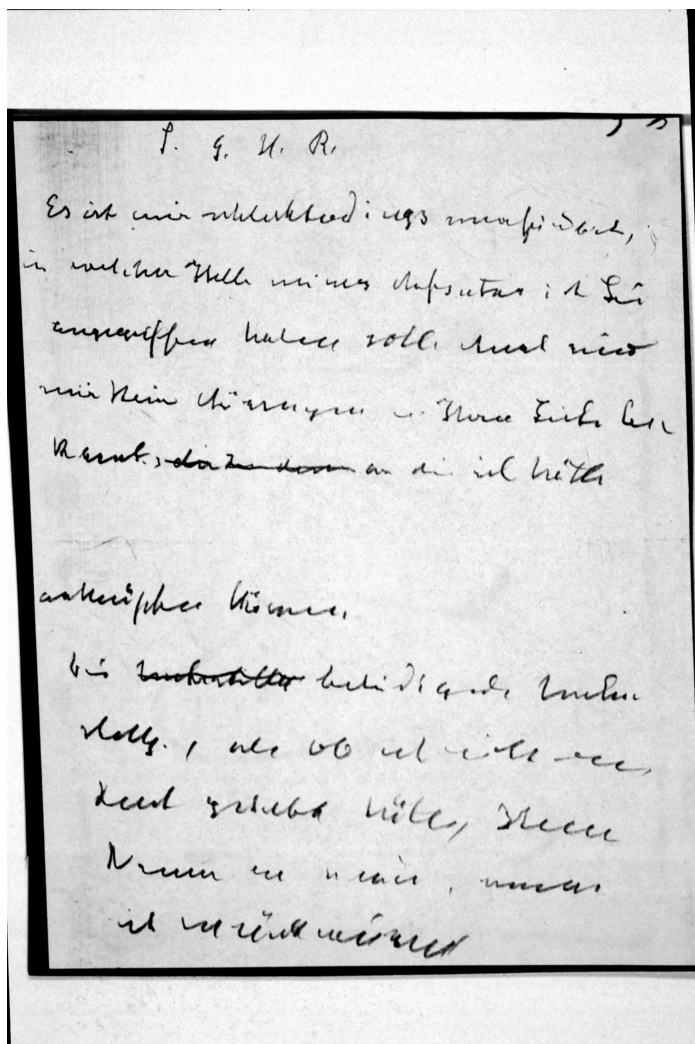 S. G. H. R.
Es ist mir schlechterdings unerfindlich,
in welcher Stelle meines Aufsatzes ich Sie
angegriffen haben soll. Auch sind
mir keine Äusserungen Ihrer Seite
bekannt, an die ich hätte
anknüpfen können.
Die beleidigende Unter-
stellg., als ob ich nicht den
Mut gehabt hätte, Ihren
Namen zu nennen, muss
ich zurückweisen